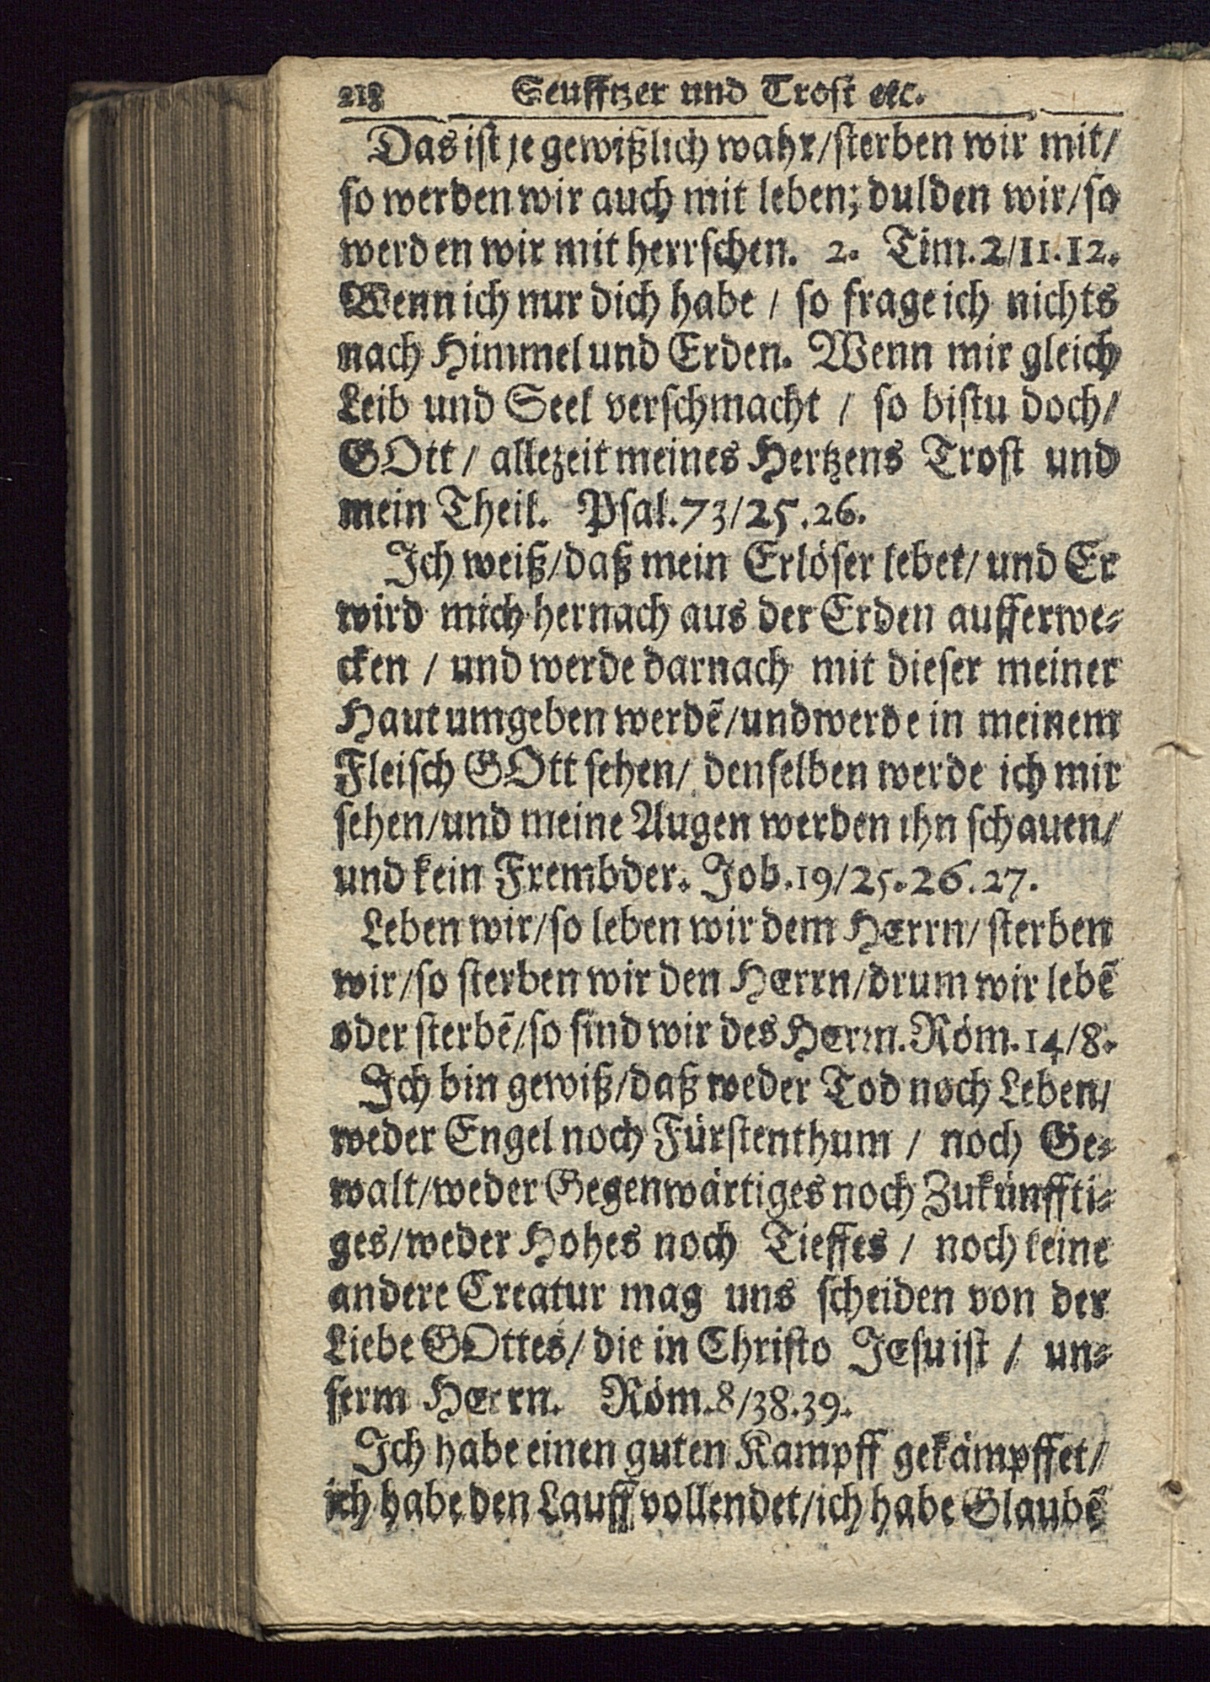 218 Seufftzer und Trost etc.
Das ist je gewißlich wahr/sterben wir mit/
so werden wir auch mit leben; dulden wir/so
werden wir mit herrschen. 2. Tim. 2/11.12.
Wenn ich nur dich habe / so frage ich nichts
nach Himmel und Erden. Wenn mir gleich
Leib und Seel verschmacht / so bistu doch/
GOtt / allezeit meines Hertzens Trost und
mein Theil. Psal. 73/25.26.
Ich weiß/daß mein Erlöser lebet/ und Er
wird mich hernach aus der Erden aufferwe-
cken / und werde darnach mit dieser meiner
Haut umgeben werdẽ/und werde in meinem
Fleisch GOtt sehen/ denselben werde ich mir
sehen/und meine Augen werden ihn schauen/
und kein Frembder. Job. 19/25.26.27.
Leben wir/so leben wir dem HErrn/ sterben
wir/so sterben wir den HErrn/drum wir lebẽ
oder sterbẽ/so sind wir des HErrn. Röm. 14/8.
Ich bin gewiß/daß weder Tod noch Leben/
weder Engel noch Fürstenthum / noch Ge-
walt/weder Gegenwärtiges noch Zukünffti-
ges/weder Hohes noch Tieffes / noch keine
andere Creatur mag uns scheiden von der
Liebe GOttes/ die in Christo JEsu ist / un-
serm HErrn. Röm. 8/38.39.
Ich habe einen guten Kampff gekämpffet/
ich habe den Lauff vollendet/ich habe Glaubẽ